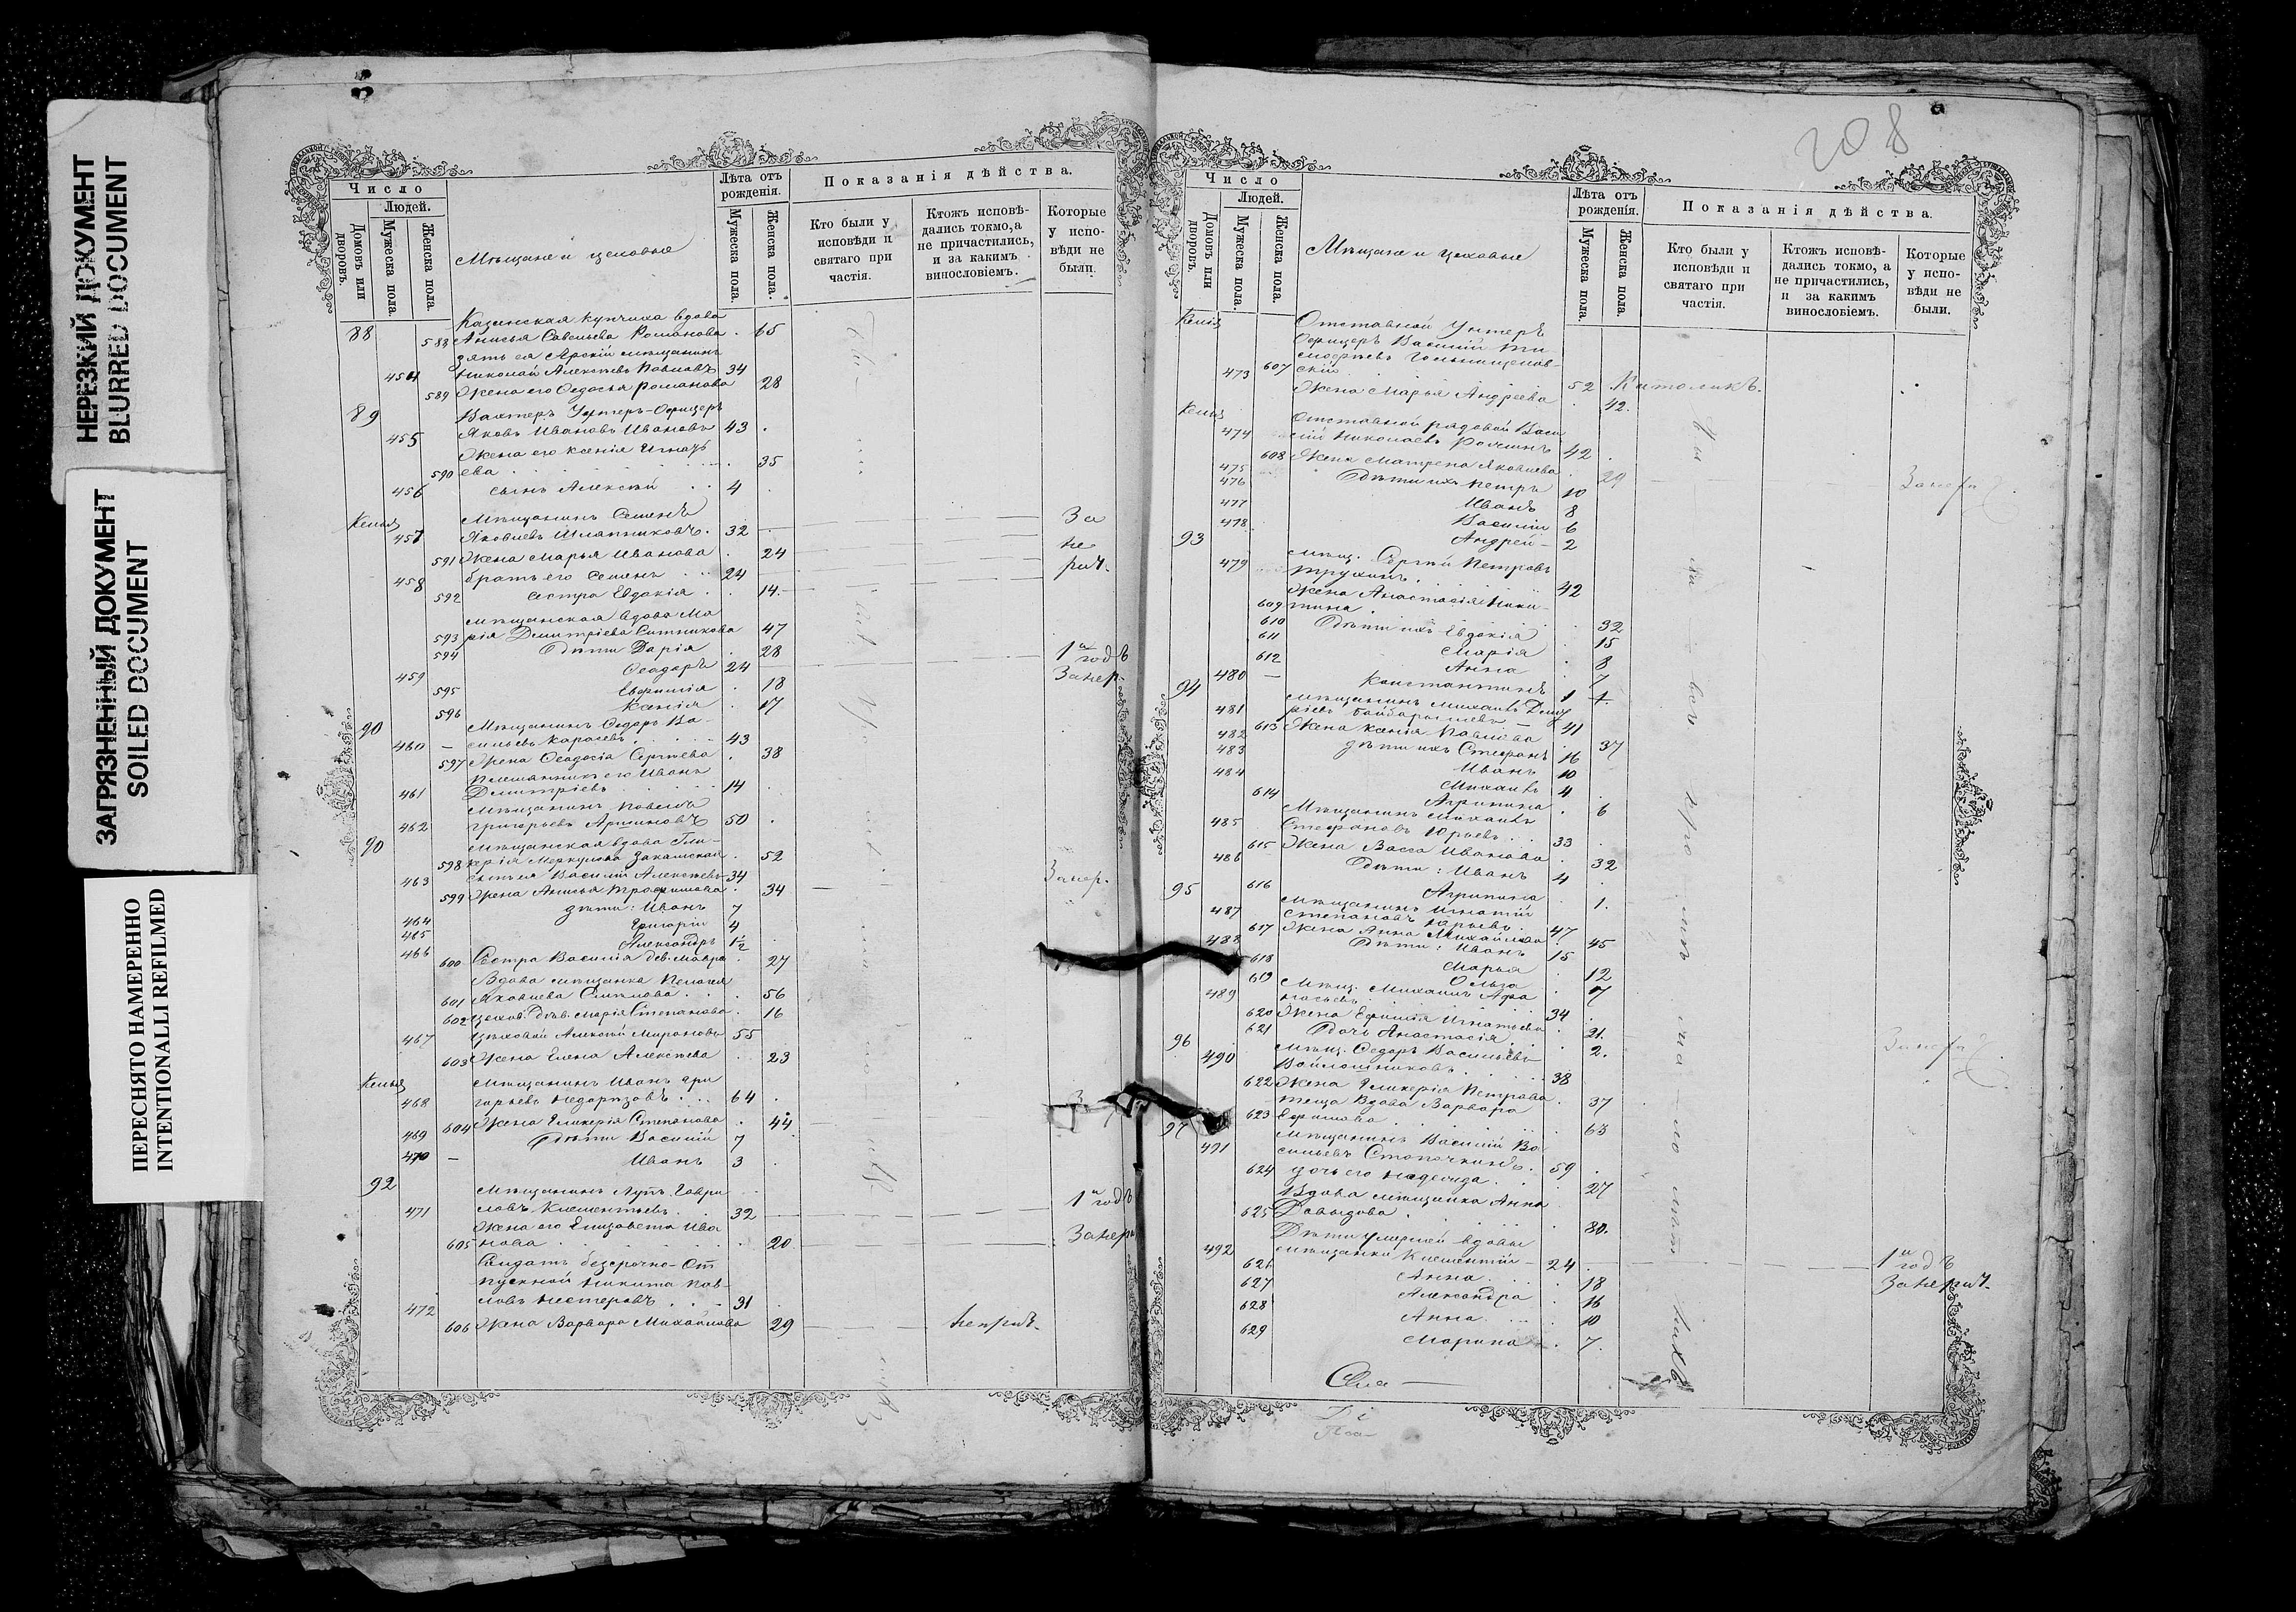 НЕРЕЗКИЙ ДОКУМЕНТ
BLURRED DOCUMENT
ЗАГРЯЗНЕННЫЙ ДОКУМЕНТ
SOILED DOCUMENT
ПЕРЕСНЯТО НАМЕРЕННО
INTENTIONALLI REFILMED
Число
Людей.
Домовъ или дворовъ.
Мужеска пола.
Женска пола.
Мѣщане и цеховые
Лѣта отъ рожденія.
Мужеска пола.
Женска пола.
Показанія дѣйства.
Кто были у исповѣди и святаго при частія.
Ктожъ исповѣ-дались токмо, а не причастились, и за какимъ винословіемъ.
Которые у испо-вѣди не были.
88 Казанская купчиха вдова
588 Анисья Савельева Романова 65
зять ея Арскій мѣщанинъ
454 Николай Алексѣевъ Павловъ 34
589 Жена его Федосья Романова 28
89 Вахтеръ Унтеръ-Офицеръ
455 Яковъ Ивановъ Ивановъ 43
Жена его Ксенія Игнать
590 ева 35
456 сынъ Алексѣй 4
Келья Мѣщанинъ Семенъ
457 Яковлевъ Шляпниковъ 32 За
591 Жена Марья Иванова 24 не
458 братъ его Семенъ 24 рач.
592 сестра Евдокія 14
Мѣщанская вдова Ма
593 рія Дмитріева Ситникова 47
594 Дѣти Дарія 28
459 Ѳеодоръ 24 1й годъ Занер.
595 Евфимія 18
596 Ксенія 17
90 Мѣщанинъ Ѳедоръ Ва-
460 сильевъ Карасевъ 43
597 Жена Ѳеодосія Сергѣева 38
Племянникъ его Иванъ
461 Дмитріевъ 14
Мѣщанинъ Павелъ
462 Григорьевъ Аршиновъ 50
90 Мѣщанская вдова Гли-
598 керія Меркулова Закамская 52
463 сынъ ея Василій Алексѣевъ 34
599 Жена Анисья Трофимова 34 Занер.
464 дѣти: Иванъ 7
465 Григорій 4
466 Александръ 1½
600 Сестра Василія дѣв. Мавра 27
Вдова мѣщанка Пелагея
601 Яковлева 56
602 цехов. дѣв. Марія Степанова 16
467 Цѣховой Алексѣй Мироновъ 55
603 Жена Елена Алексѣева 23
Келья Мѣщанинъ Иванъ Гри
468 горьевъ 64
604 Жена Гликерія Степанова 44
469 Дѣти Василій 7
470 Иванъ 3
92 Мѣщанинъ Лупъ Гаври
471 ловъ Клементьевъ 32 1й годъ
Жена его Елизавета Ива
605 нова 20 Занер
Солдатъ безсрочно-От
пускной Никита Пав-
472 ловъ Нестеровъ 31
606 Жена Варвара Михайлова 29 неприч.
208
Число
Людей.
Домовъ или дворовъ.
Мужеска пола.
Женска пола.
Мѣщане и цеховые
Лѣта отъ рожденія.
Мужеска пола.
Женска пола.
Показанія дѣйства.
Кто были у исповѣди и святаго при частія.
Ктожъ исповѣ-дались токмо, а не причастились, и за какимъ винословіемъ.
Которые у испо-вѣди не были.
Келья Отставной Унтеръ
Офицеръ Василій Ти
мофѣевъ
473 скій 52 Католикъ.
607 Жена Марья Андреева 42.
Келья Отставной рядовой Васи
474 лій Николаевъ 42
608 Жена Матрена Яковлева 29 Занера
475 Дѣти ихъ Петръ 10
476 Иванъ 8
477 Василій 6
478 Андрей 2
93 Мѣщ. Сергѣй Петровъ
479 Трухинъ 42
Жена Анастасія Ники-
609 тина 32
610 Дѣти ихъ Евдокія 15
611 Марія 8
612 Анна 7
480 Константинъ 1
94 Мѣщанинъ Михаилъ Дмит
481 ріевъ 41
613 Жена Ксенія Павлова 37
482 дѣти ихъ Стефанъ 16
483 Иванъ 10
484 Михаилъ 4
614 Агрипина 6
Мѣщанинъ Михаилъ
485 Стефановъ Юрьевъ 33
615 Жена Васса Иванова 32
486 Дѣти: Иванъ 4
616 Агрипина 1.
95 Мѣщанинъ Игнатій
487 Степановъ Юрьевъ 47
617 Жена Анна Михайлова 45
488 Дѣти: Иванъ 15
618 Марья 12
619 Ольга 7
Мѣщ. Михаилъ Афа
489 насьевъ 34
620 Жена Ефимія Игнатьева 21.
621 Дочь Анастасія 2.
96 Мѣщ. Ѳедоръ Васильевъ Занера
490 Войлошниковъ 38
622 Жена Гликерія Петрова 37
теща Вдова Варвара
623 Ефимова 63
97 Мѣщанинъ Василій Ва
491 сильевъ 59
624 дочь его Надежда 27
Вдова мѣщанка Анна
625 Давыдова 80.
Дѣти умершей вдовы
492 мѣщанки Климентій 24 1й годъ
626 Анна 18 Занерач.
627 Александра 16
628 Анна 10
629 Марина 7.